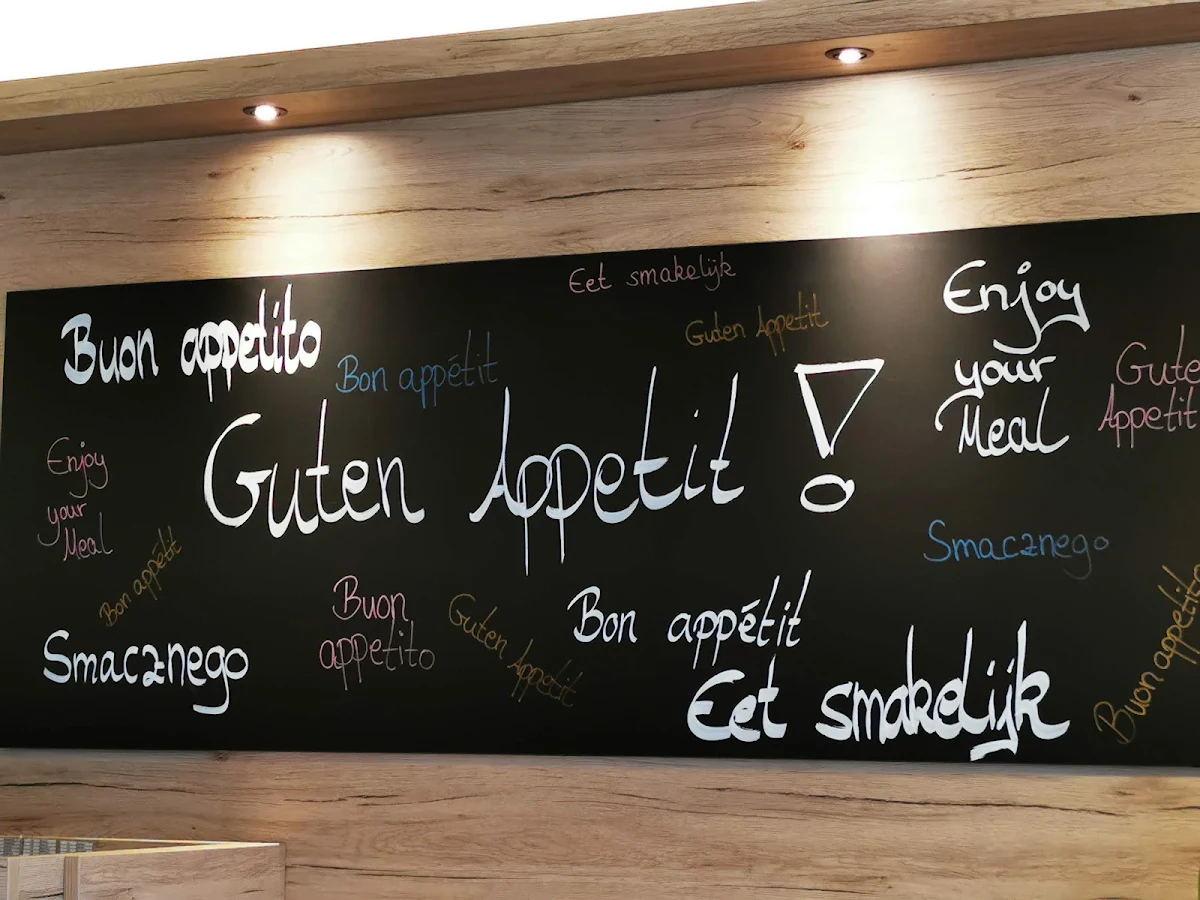 Eet smakelijk
Buon appetito
Bon appétit
Guten Appetit
Enjoy
your
Meal
Gute
Appetit
Guten Appetit!
Enjoy
your
Meal
Bon appétit
Smacznego
Smacznego
Buon
appetito
Guten Appetit
Bon appétit
Eet smakelijk
Buon appetito